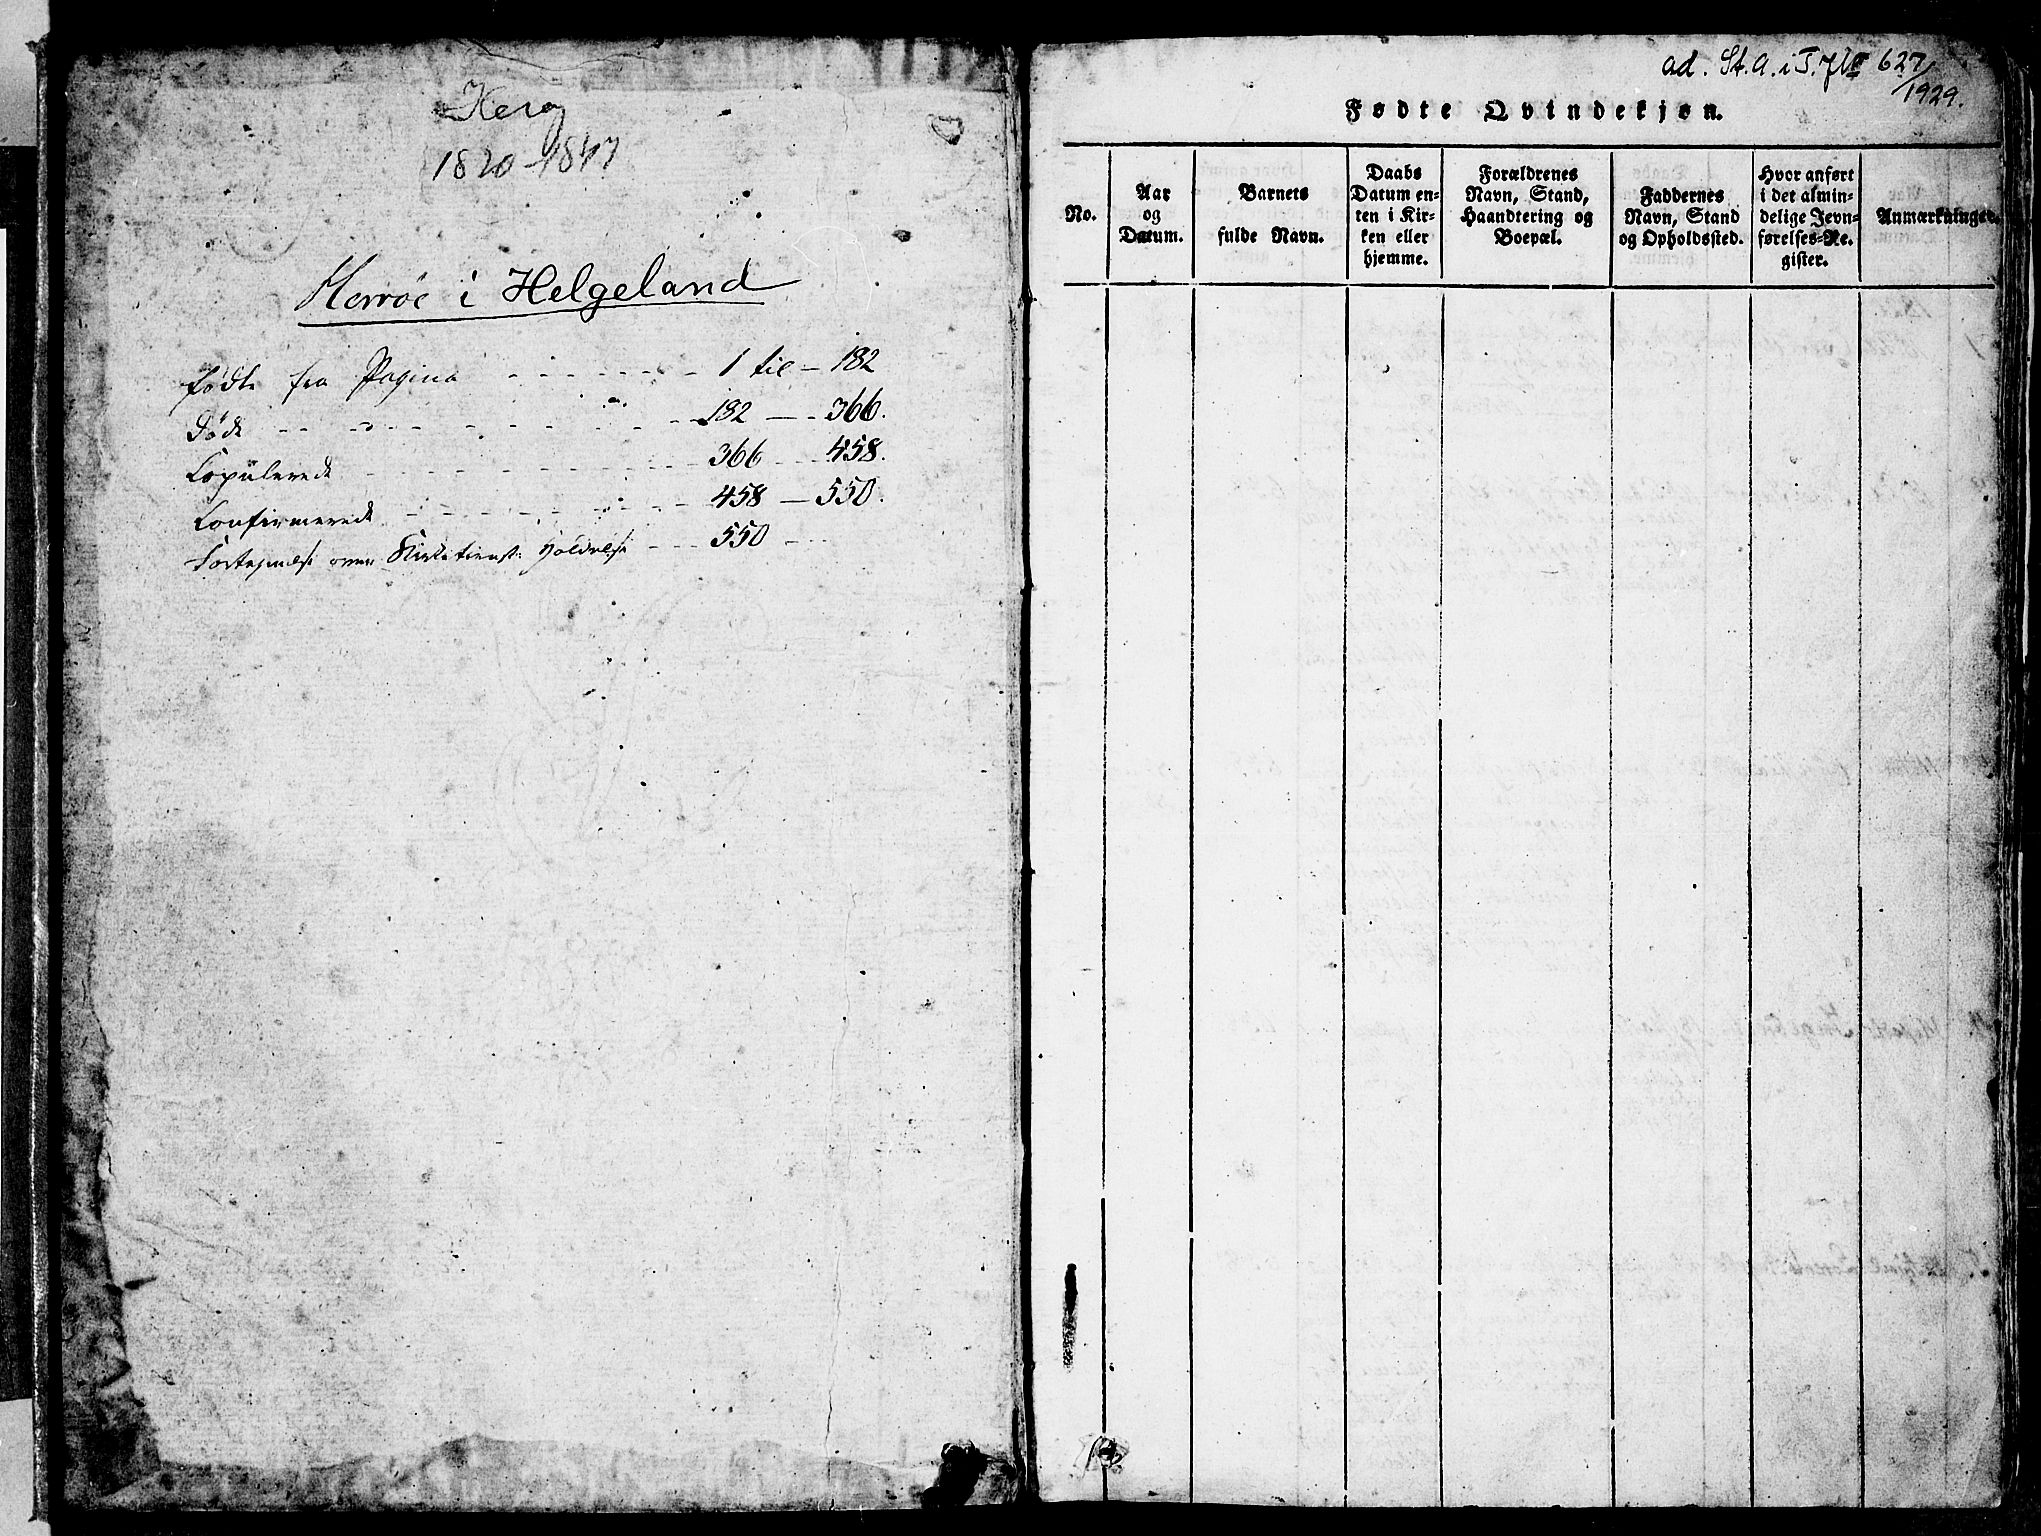 Herøy
1820-1847
Herröe i Helgeland
Födte fra Pagina - - - - - - - 1 til - 182
Döde - - - - - - - - - - 182 - - 366.
Copulerede - - - - - - - - - 366 - - 458.
Confirmerede - - - - - - - - 458 - 550.
Fortegnelse over Kirketienst: Holdelse - - - 550 - - -
ad. St. A. i T. 627/1929.
Fødte Qvindekjøn.
No.
Aar
og
Datum.
Barnets
fulde Navn.
Daabs
Datum en-
ten i Kir-
ken eller
hjemme.
Forældrenes
Navn, Stand,
Haandtering og
Boepæl.
Faddernes
Navn, Stand
og Opholdssted.
Hvor anført
i det almin-
delige Jevn-
førelses-Re-
gister.
Anmærkninger.